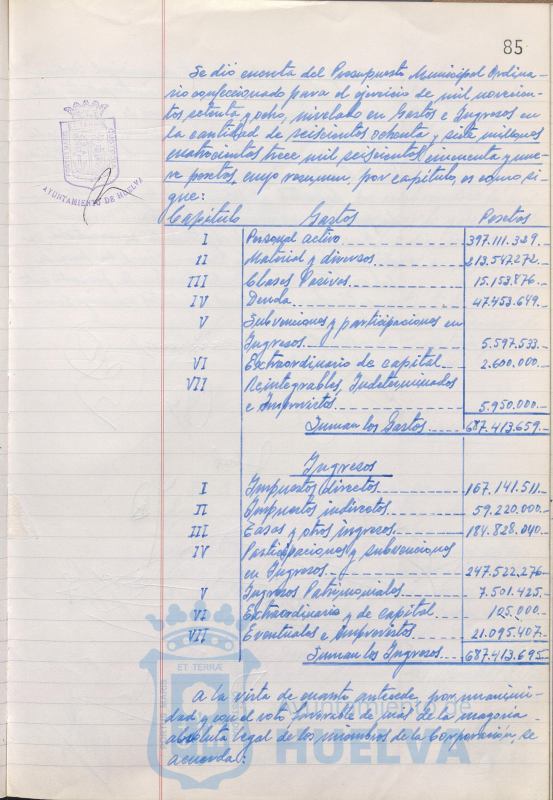 85
Se dió cuenta del Presupuesto Municipal Ordina-
rio confeccionado para el ejercicio de mil novecien-
tos setenta y ocho, nivelado en Gastos e Ingresos en
la cantidad de seiscientos ochenta y siete millones
cuatrocientos trece mil seiscientos cincuenta y nue-
ve pesetas, cuyo resumen, por capítulo, es como si-
gue:
AYUNTAMIENTO DE HUELVA
Capítulo Gastos Pesetas
I Personal activo 397.111.329.-
II Material y diversos 213.547.272.-
III Clases Pasivas 15.153.876.-
IV Deuda 47.453.649.-
V Subvenciones y participaciones en
Ingresos 5.597.533.-
VI Extraordinario de capital 2.600.000.-
VII Reintegrables, Indeterminados
e Imprevistos 5.950.000.-
Suman los Gastos 687.413.659.-
Ingresos
I Impuestos directos 167.141.511.-
II Impuestos indirectos 59.220.000.-
III Tasas y otros ingresos 184.828.040.-
IV Participaciones y subvenciones
en Ingresos 247.522.276.-
V Ingresos Patrimoniales 7.501.425.-
VI Extraordinario y de capital 125.000.-
VII Eventuales e Imprevistos 21.095.407.-
Suman los Ingresos 687.413.695.-
A la vista de cuanto antecede, por unanimi-
dad, y con el voto favorable de más de la mayoría
absoluta legal de los miembros de la Corporación, se
acuerda:
ET TERRÆ
Ayuntamiento de
HUELVA